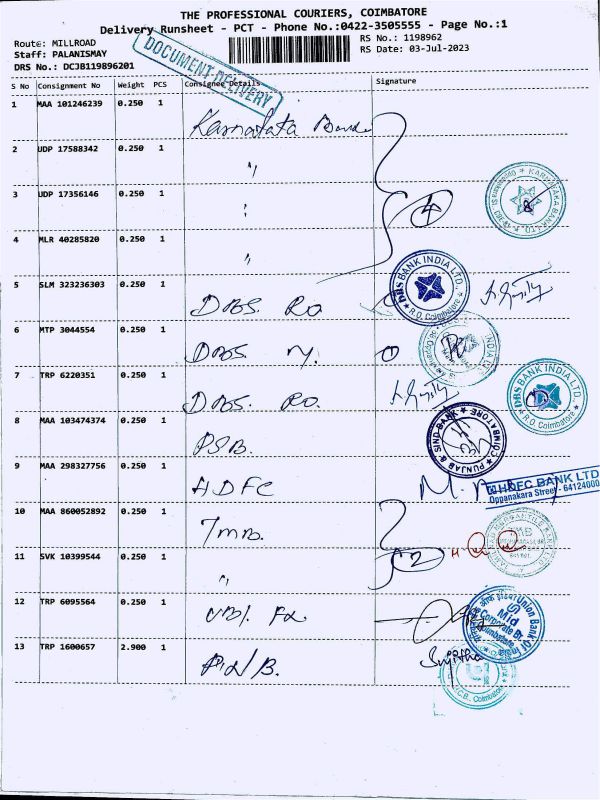 THE PROFESSIONAL COURIERS, COIMBATORE
Delivery Runsheet - PCT - Phone No.:0422-3505555 - Page No.:1
Route: MILLROAD
RS No.: 1198962
Staff: PALANISMAY
RS Date: 03-Jul-2023
DRS No.: DCJB119896201
DOCUMENT DELIVERY
S No Consignment No Weight PCS Consignee Details Signature
1 MAA 101246239 0.250 1 Karnataka Bank
2 UDP 17588342 0.250 1 "
3 UDP 17356146 0.250 1 "
4 MLR 40285820 0.250 1 "
4
KARNATAKA BANK LTD.
5 SLM 323236303 0.250 1 DBS RO
DBS BANK INDIA LTD., R.O. Coimbatore
6 MTP 3044554 0.250 1 DBS
7 TRP 6220351 0.250 1 DBS. RO.
DBS BANK INDIA LTD., R.O. Coimbatore
8 MAA 103474374 0.250 1 PSB.
PUNJAB & SIND BANK COIMBATORE
9 MAA 298327756 0.250 1 HDFC
HDFC BANK LTD
Oppanakara Street - 64124000
10 MAA 860052892 0.250 1 TMB.
11 SVK 10399544 0.250 1 "
2
TMB
12 TRP 6095564 0.250 1 UBI.
Union Bank Of India
Mid Corporate Br
Coimbatore
13 TRP 1600657 2.900 1 PNB.